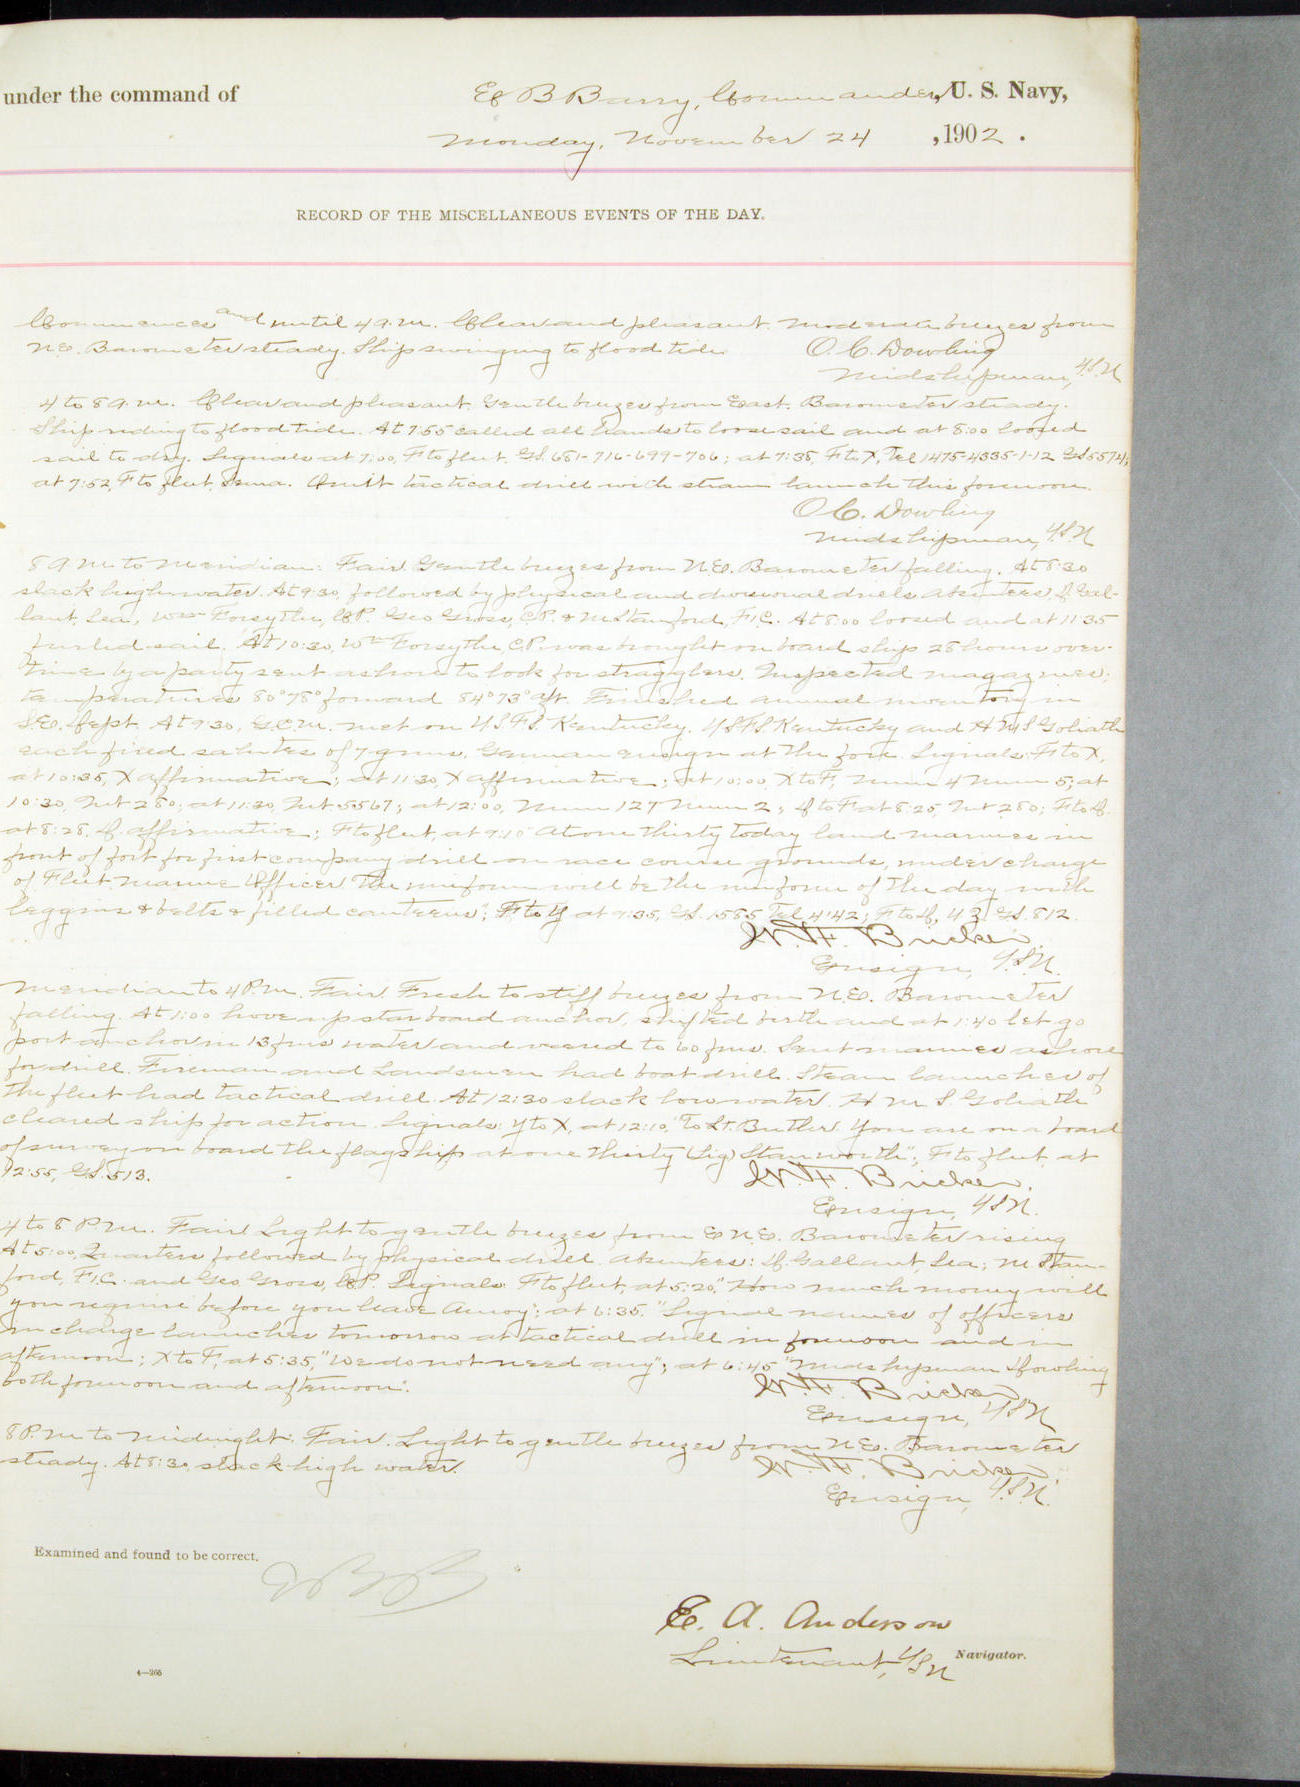 under the command of E B Barry, Commander, U. S. Navy,
Monday, November 24, 1902.
RECORD OF THE MISCELLANEOUS EVENTS OF THE DAY.
Commences and until 4 a.m. Clear and pleasant. Moderate breezes from
N.E. Barometer steady. Ship swinging to flood tide. O. C. Dowling
Midshipman, U.S.N
4 to 8 a.m. Clear and pleasant. Gentle breezes from East. Barometer steady.
Ship riding to flood tide. At 7:55 called all hands to loose sail and at 8:00 loosed
sail to dry. Signals at 7:00, F to fleet, G.S. 681-716-699-706; at 7:38, F to X, Tel 1475-4335-1-12 GS 5574;
at 7:52, F to fleet, Omit tactical drill with steam launch this forenoon.
O C. Dowling
Midshipman, U.S.N
8 A M to Meridian: Fair. Gentle breezes from N.E. Barometer falling. At 8:30
slack high water. At 9:30, followed by physical and divisional drills. Absentees, H Gal-
lant, Sea, Wm Forsythe, C.P. Geo Gross, C.P. & M Stanford, F.1.C. At 8:00 loosed and at 11:35
furled sail. At 10:30, Wm Forsythe C.P. was brought on board ship 28 hours over-
time by a party sent ashore to look for stragglers. Inspected magazines;
temperatures 80° 78° forward 84° 73° aft. Finished annual inventory in
S.E. Dept. At 9:30, G.C.M. met on U.S.F.S. Kentucky. U.S.F.S. Kentucky and H M S Goliath
each fired salutes of 7 guns, German ensign at the fore. Signals: F to X,
at 10:35, X affirmative; at 11:30, X affirmative; at 10:00, X to F, Num 4 Num 5; at
10:30, Int 280; at 11:30, Int 5567; at 12:00, Num 127 Num 2; H to F at 8:25, Int 280; F to H
at 8:28, H affirmative; F to fleet, at 9:10 "At one thirty today land marines in
front of fort for first company drill on race course grounds, under charge
of Fleet Marine Officer The uniform will be the uniform of the day with
leggins & belts & filled canteens"; F to Y at 9:35, G.S. 1585 Tel 4142; F to H, U 3 G.S. 812.
W. F. Bricker.
Ensign, U.S.N.
Meridian to 4 P.m. Fair. Fresh to stiff breezes from N.E. Barometer
falling. At 1:00 hove up starboard anchor, shifted berth and at 1:40 let go
port anchor in 13 fms water and veered to 60 fms. Sent marines ashore
for drill. Fireman and Landsmen had boat drill. Steam launches of
the fleet had tactical drill. At 12:30 slack low water. H M S Goliath
cleared ship for action. Signals: Y to X, at 12:10, "To Lt. Butler You are on a board
of survey on board the flagship at one thirty (Sig) Stanworth"; F to fleet, at
12:55, G.S. 513. W. F. Bricker.
Ensign, U.S.N.
4 to 8 P m. Fair. Light to gentle breezes from E N.E. Barometer rising
At 5:00, Quarters followed by physical drill. Absentees: H. Gallant, Sea; M Stan-
ford, F.1.C. and Geo Gross, C.P. Signals: F to fleet, at 5:20, "How much money will
you require before you leave Amoy"; at 6:35. "Signal names of officers
in charge launches tomorrow at tactical drill in forenoon and in
afternoon; X to F, at 5:35, "We do not need any"; at 6:45 "Midshipman Dowling
both forenoon and afternoon". W. F. Bricker
Ensign, U.S.N
8 P.M. to Midnight: Fair. Light to gentle breezes from N.E. Barometer
steady. At 8:30, slack high water. W. F. Bricker
Ensign, U.S.N.
Examined and found to be correct.
E. A. Anderson
Lieutenant, U S N Navigator.
4—265